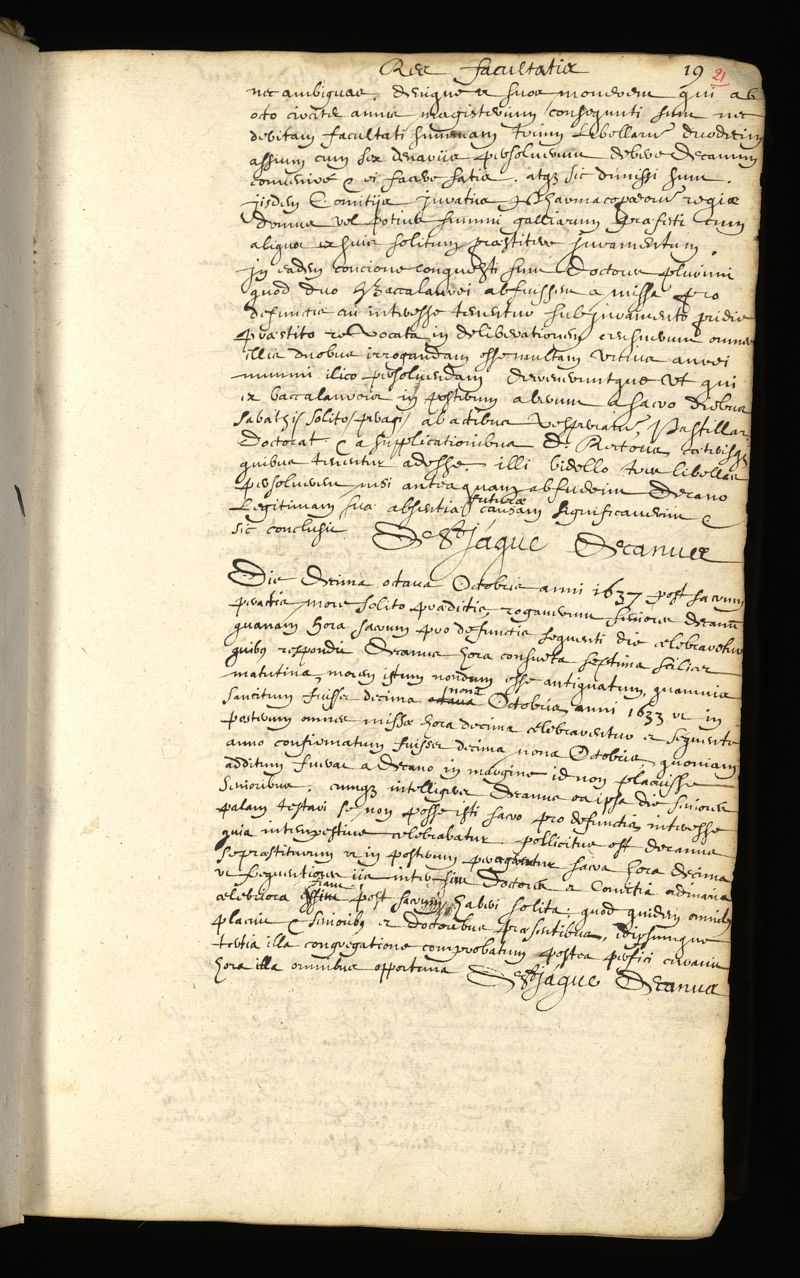 Res facultatis 19 21
nec ambiguas, denique et suos monerem qui ab
octo circiter annis magisterium consequuti sunt nec
debitam facultati summam trium libellarum duodecim
assium cum sex denariis persoluerunt debere Decanum
convenire & ei facere satis. atque sic dimissi sunt.
iisdem Comitiis juratis Pharmacopoeorum regiae
domus vel potius summi galliarum praefecti cum
aliquis ex suis solitum praestitere juramentum.
In eadem concione conquesti sunt Doctores plurimi
quod duo Baccalaurei abfuissent a missa pro
defunctis cui interesse tenentur sub juramento pridie
praestito re vocata in deliberationem censuerunt omnes
illis duobus irrogandam esse multam unius aurei
nummi ilico persoluendam decreveruntque ut qui
ex baccalaureis in posterum aberunt a sacro diebus
sabathi (solito peragi) ab actibus vesperiarum Pastillar.
Doctorat. & a supplicationibus D. Rectoris caeterisque
quibus tenentur adesse. illi bidello tres libellas
persoluerent nisi antea quam abfuerint Decano
Legitimam suae absentiae futurae causam significaverint &
sic conclusit De St Jaques Decanus
Die Decima octava Octobris anni 1637 post sacrum
peractis more solito praedictis, rogaverunt seniores decanum
quanam hora sacrum pro defunctis sequenti die celebraretur
quibus respondit Decanus hora consueta septima scilicet
matutina, morem istum nondum esse antiquatum, quamvis
sancitum fuisset decima octava nona Octobris anni 1633 ut in
posterum omnes missae hora decima celebrarentur et sequente
anno confirmatum fuisset decima nona Octobris, quoniam
additum fuerat a Decano in margine id non placuisse
Senioribus. cumque intelligeret Decanus ea ipsa die seniores
palam testari se non posse isti sacro pro defunctis interesse
quia intempestive celebrabatur. pollicitus est decanus
se praestiturum ut in posterum peragerentur sacra hora decima
ut frequentiores iis intersint Doctores et Comitia ordinaria
celebriora fiant post sacrum haberi solita: quod quidem omnibus
placuit & Senioribus et Doctoribus praesentibus, idipsumque
tertia illa congregatione comprobatum postea perfici curavit
hora illa omnibus opportuna De St Jaques Decanus